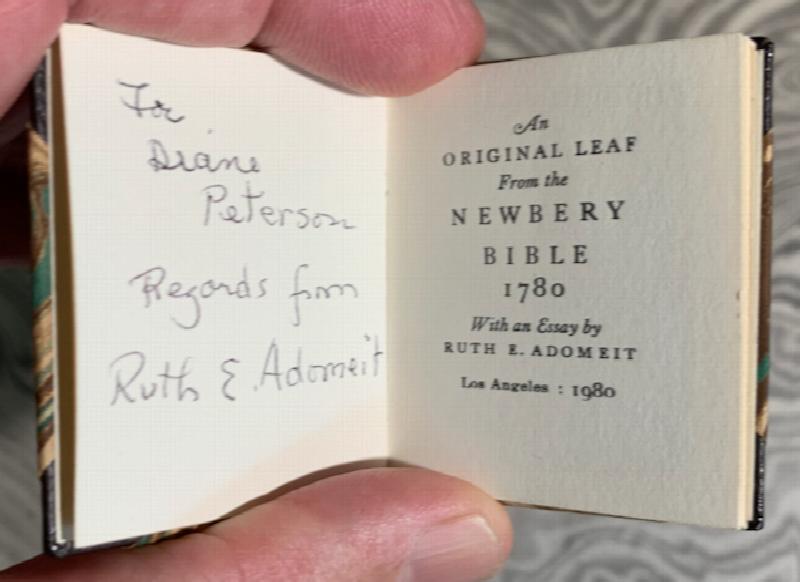 For
Diane
Peterson
Regards from
Ruth E. Adomeit
An
ORIGINAL LEAF
From the
NEWBERY
BIBLE
1780
With an Essay by
RUTH E. ADOMEIT
Los Angeles : 1980